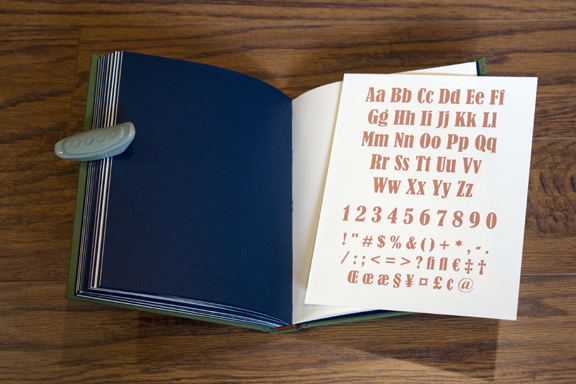 Aa Bb Cc Dd Ee Ff
Gg Hh Ii Jj Kk Ll
Mm Nn Oo Pp Qq
Rr Ss Tt Uu Vv
Ww Xx Yy Zz
1 2 3 4 5 6 7 8 9 0
! " # $ % & ( ) + * , - .
/ : ; < = > ? fi fl € ‡ †
Œ œ æ § ¥ ¤ £ ¢ @